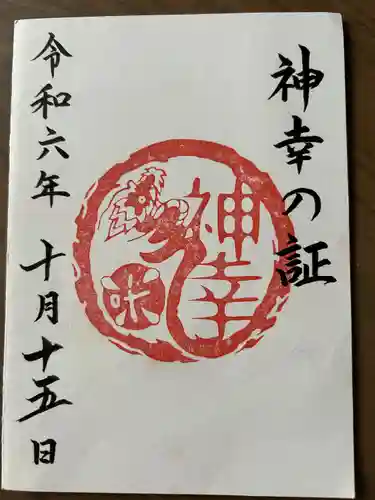 神幸の証
神幸
米
令和六年 十月十五日